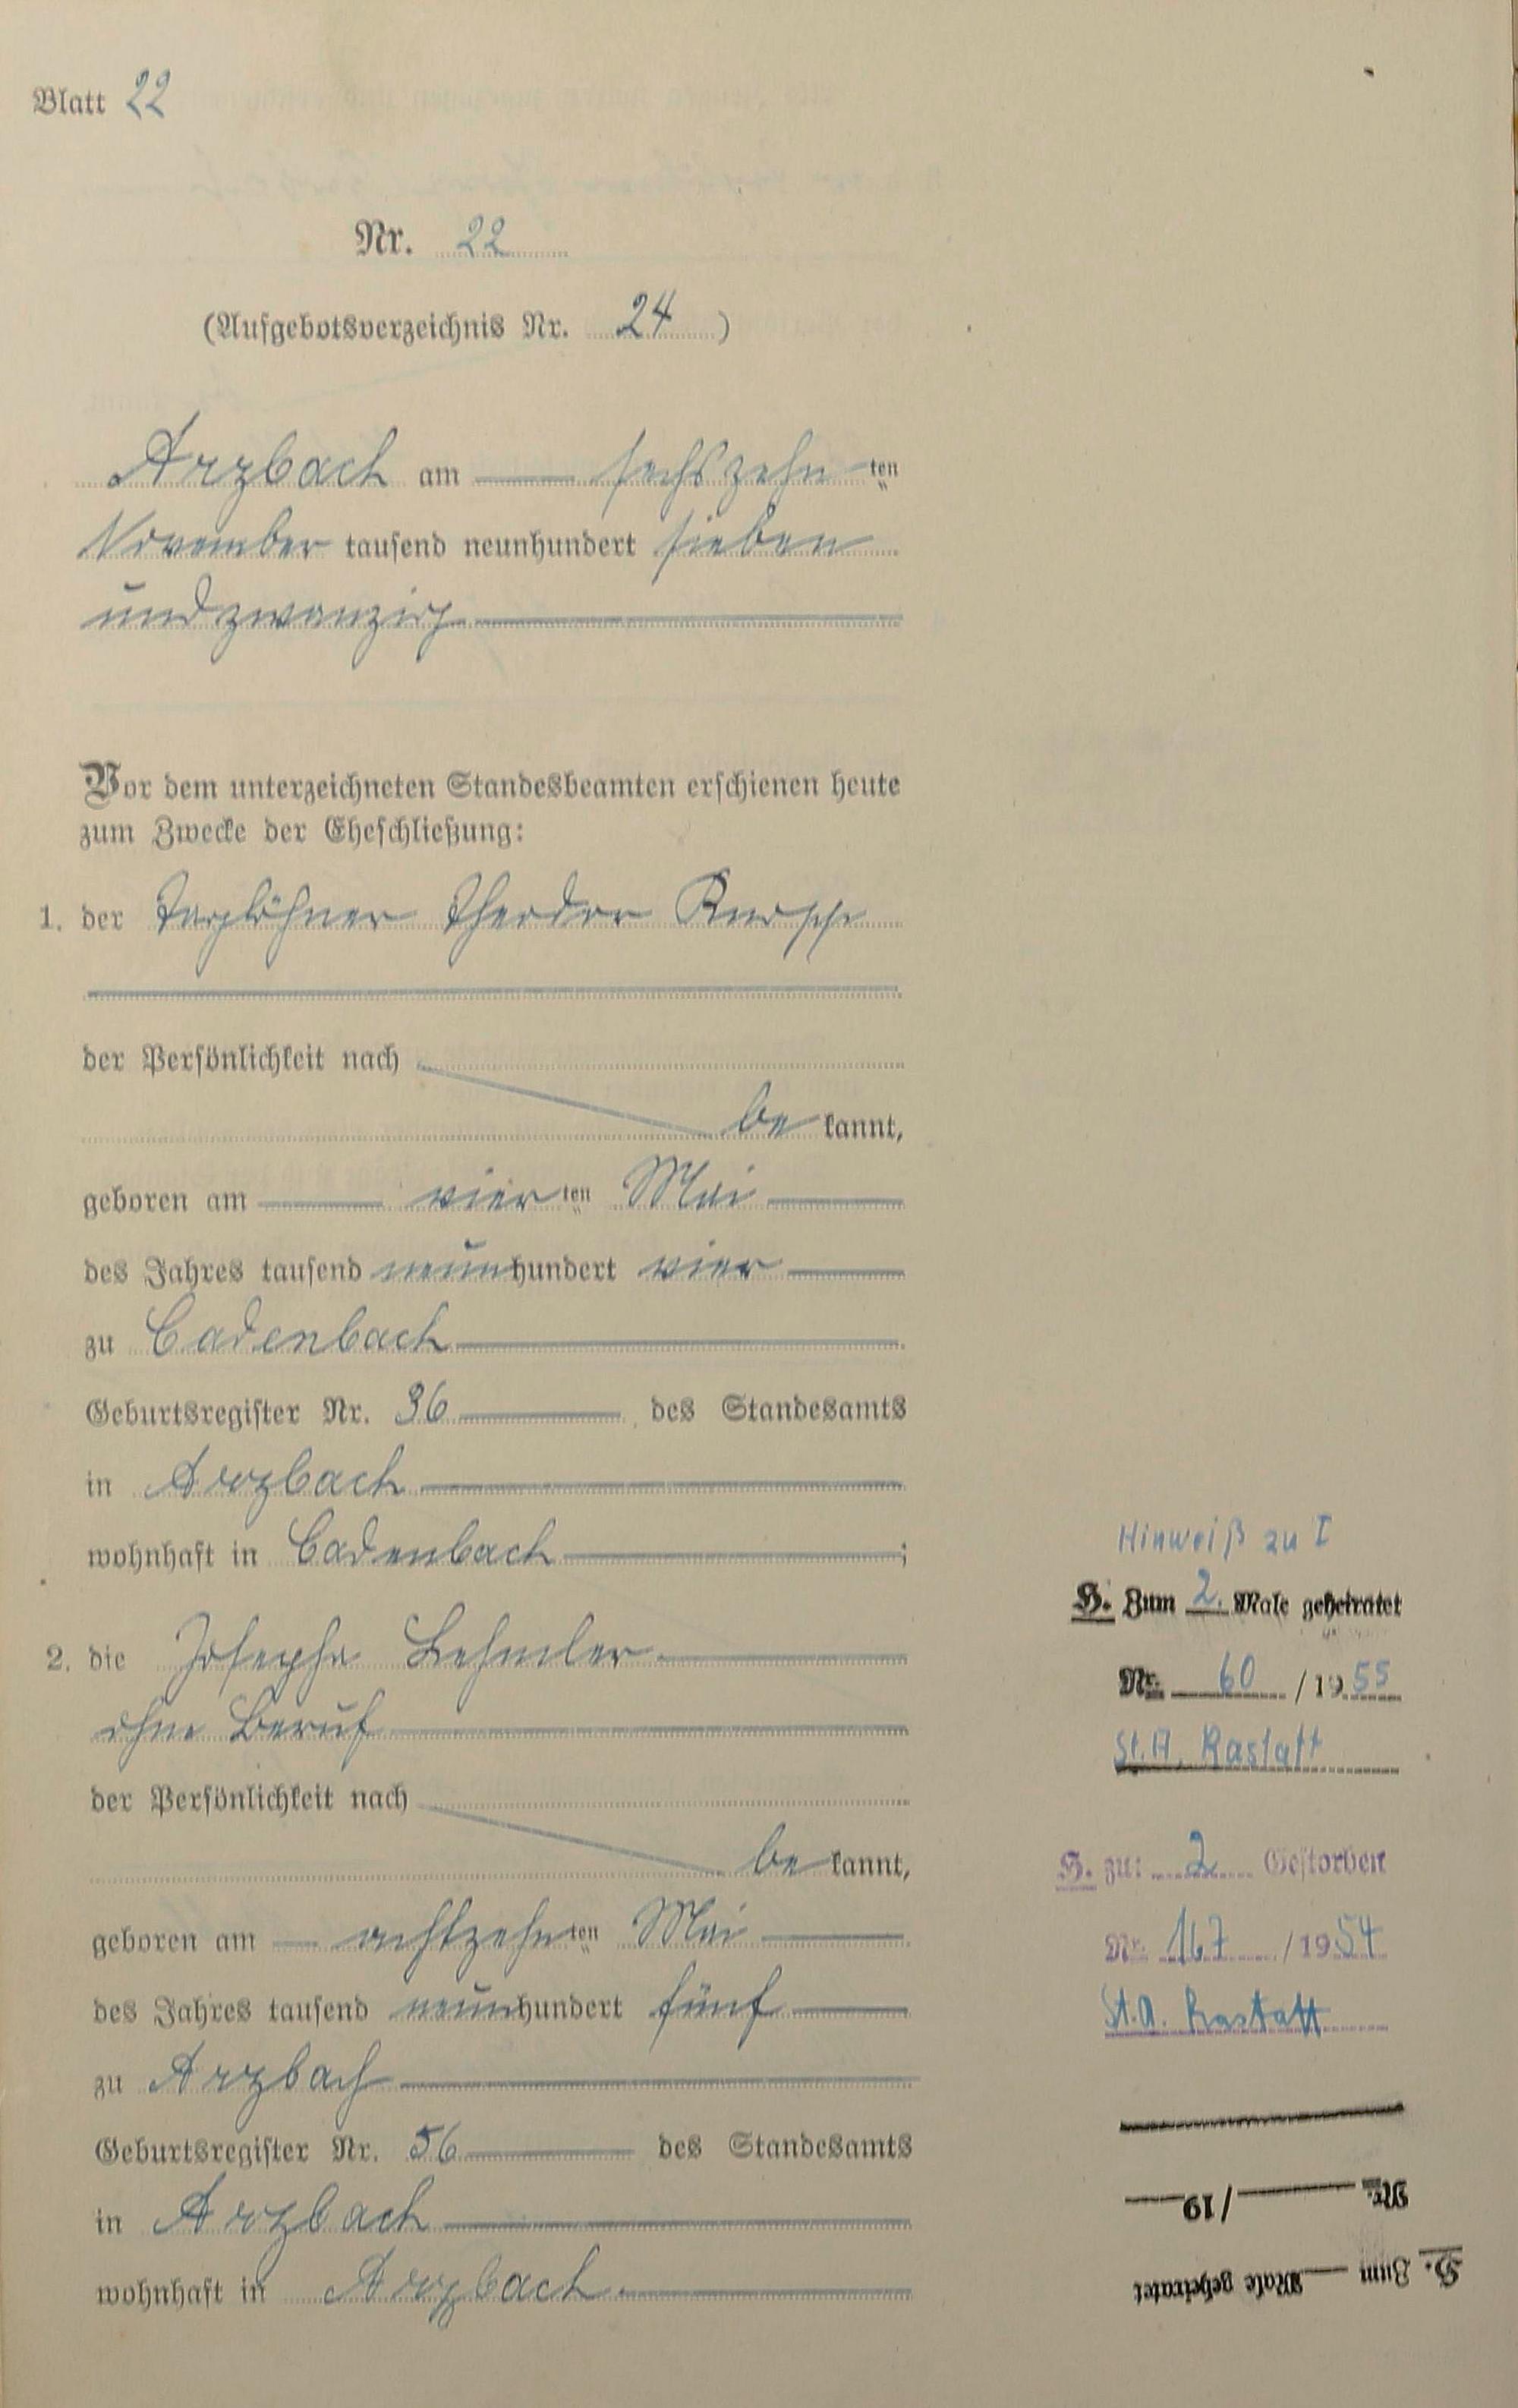 Blatt 22
Nr. 22
(Aufgebotsverzeichnis Nr. 24)
Arzbach am sechszehn ten
November tausend neunhundert sieben
und zwanzig
Vor dem unterzeichneten Standesbeamten erschienen heute
zum Zwecke der Eheschließung:
1. der Taglöhner Theodor Knopp
der Persönlichkeit nach
be kannt,
geboren am vier ten Mai
des Jahres tausend neunhundert vier
zu Cadenbach
Geburtsregister Nr. 36 des Standesamts
in Arzbach
wohnhaft in Cadenbach;
2. die Josepha Lehmler
ohne Beruf
der Persönlichkeit nach
be kannt,
geboren am achtzehn ten Mai
des Jahres tausend neunhundert fünf
zu Arzbach
Geburtsregister Nr. 56 des Standesamts
in Arzbach
wohnhaft in Arzbach
Hinweiß zu I
H. Zum 2. Male geheiratet
Nr. 60 / 1955
St. A. Rastatt
H. zu: 2 Gestorben
Nr. 167 / 1954
St. A. Rastatt
H. Zum Male geheiratet
Nr. /19